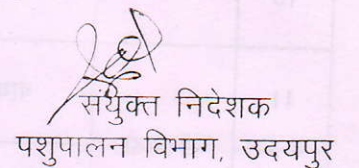 संयुक्त निदेशक
पशुपालन विभाग, उदयपुर